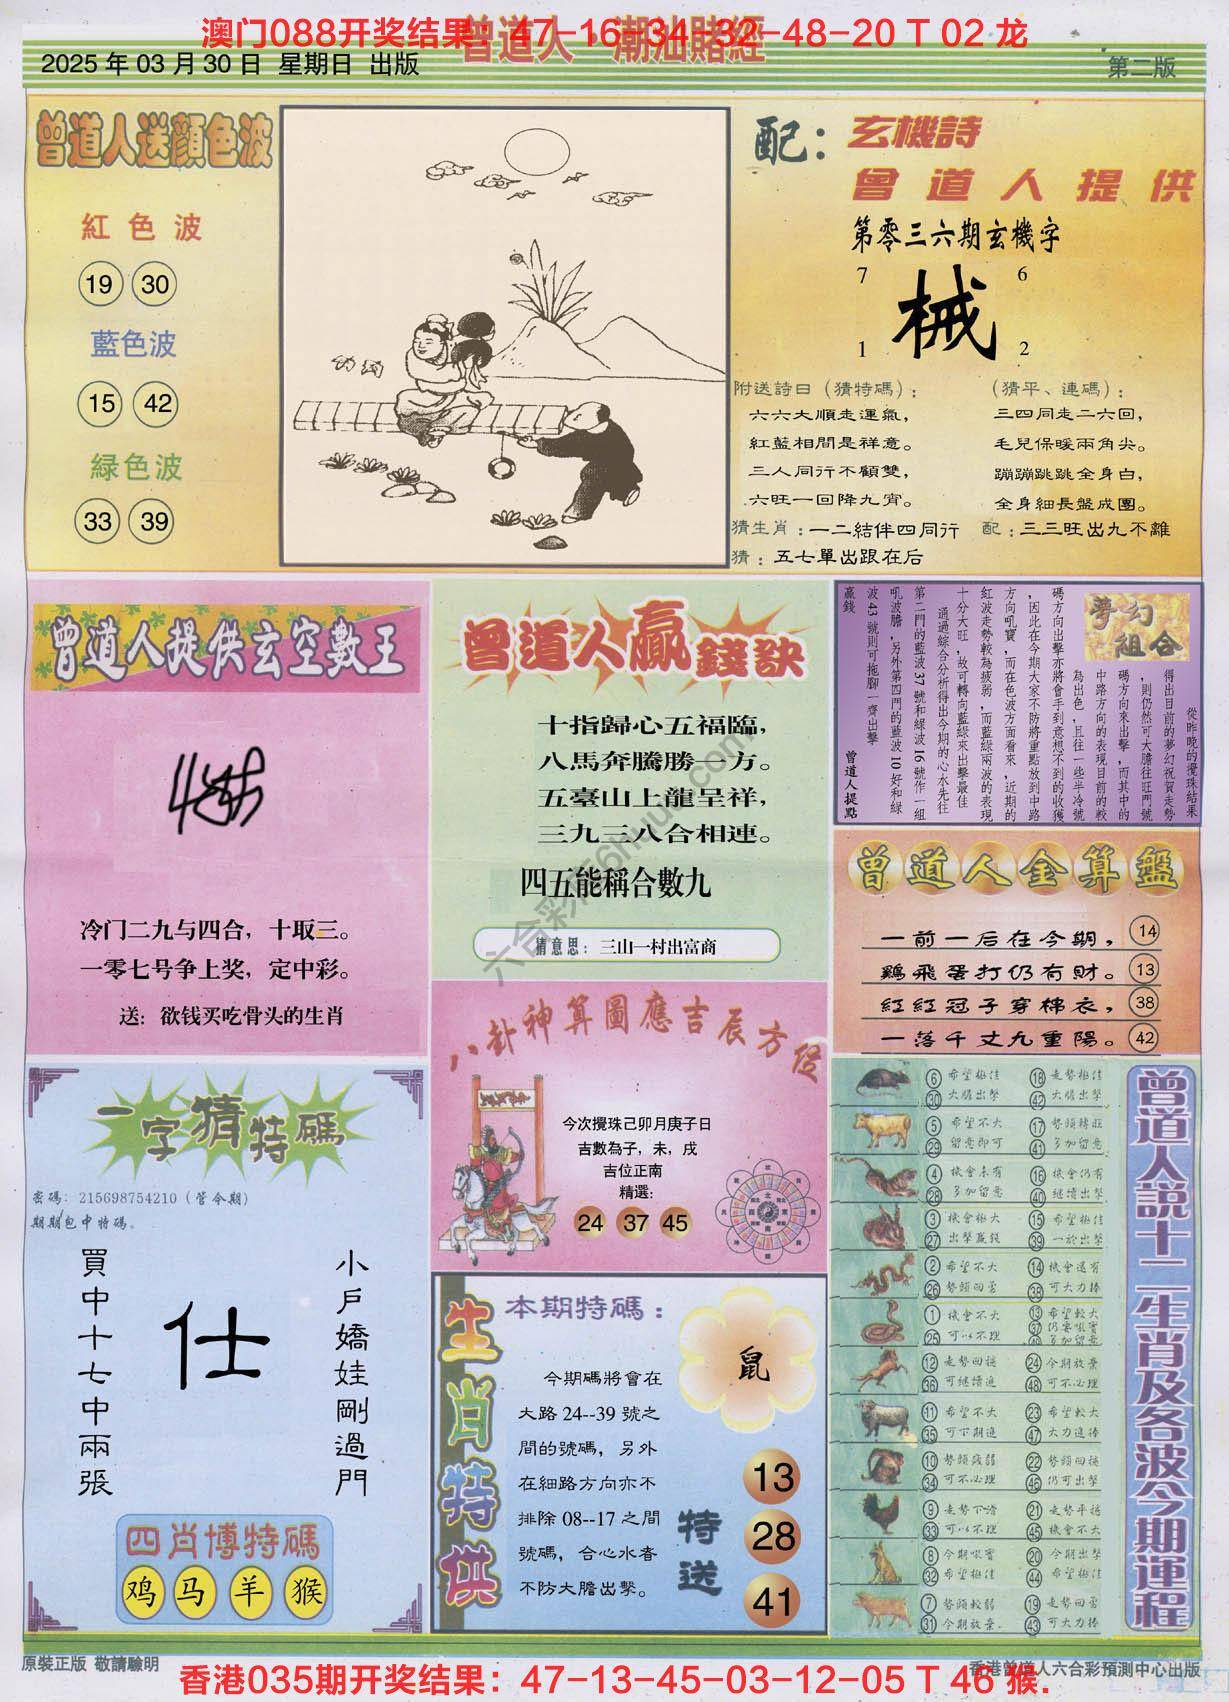 澳门088开奖结果：47-16-34-32-48-20 T 02 龙
曾道人 潮汕賭經
2025 年 03 月 30 日 星期日 出版
第二版
曾道人送顏色波
紅色波
19 30
藍色波
15 42
緑色波
33 39
配：玄機詩
曾道人提供
第零三六期玄機字
7 6
械
1 2
附送詩曰（猜特碼）：
六六大順走運氣，
紅藍相間是祥意。
三人同行不顧雙，
六旺一回降九霄。
（猜平、連碼）：
三四同走二六回，
毛兒保暖兩角尖。
蹦蹦跳跳全身白，
全身細長盤成團。
猜生肖：一二結伴四同行 配：三三旺出九不離
猜：五七單出跟在后
曾道人提供玄空數王
冷门二九与四合，十取三。
一零七号争上奖，定中彩。
送：欲钱买吃骨头的生肖
曾道人贏錢訣
十指歸心五福臨，
八馬奔騰勝一方。
五臺山上龍呈祥，
三九三八合相連。
四五能稱合數九
猜意思：三山一村出富商
夢幻組合
從昨晚的攪珠結果
得出目前的夢幻祝賀走勢
，則仍然可大膽往旺門號
碼方向來出擊，而其中的
中路方向的表現目前的較
為出色，且往一些半冷號
碼方向出擊亦將會手到意想不到的收獲
，因此在今期大家不防將重點放到中路
方向吼寶，而在色波方面看來，近期的
紅波走勢較為疲弱，而藍綠兩波的表現
十分大旺，故可轉向藍綠來出擊最佳
通過綜合分析得出今期的心水先往
第二門的藍波 37 號和綠波 16 號作一組
吼波膽，另外第四門的藍波 10 好和綠
波 43 號則可拖腳一齊出擊
贏錢
曾道人提點
曾道人金算盤
一前一后在今期， 14
鷄飛蛋打仍有財。 13
紅紅冠子穿棉衣， 38
一落千丈九重陽。 42
八卦神算圖應吉辰方位
今次攪珠己卯月庚子日
吉數為子，未，戌
吉位正南
精選：
24 37 45
一字猜特碼
密碼：215698754210（管今期）
期期包中特碼。
買中十七中兩張
仕
小戶嬌娃剛過門
四肖博特碼
鸡 马 羊 猴
生肖特供
本期特碼：
鼠
今期碼將會在
大路 24--39 號之
間的號碼，另外
在細路方向亦不
排除 08--17 之間
號碼，合心水者
不防大膽出擊。
特送
13
28
41
曾道人説十二生肖及各波今期運程
6 希望極佳 18 走勢極佳
30 大膽出擊 42 大膽出擊
5 希望不大 17 勢頭轉旺
29 留意即可 41 多加留意
4 機會未有 16 機會仍有
28 多加留意 40 繼續出擊
3 機會極大 15 希望極佳
27 出擊贏錢 39 一於出擊
2 希望不大 14 機會還有
26 勢頭回雲 38 可大力捧
1 機會不大 13 希望較大
25 可以不理 37 仍要吼實
多加留意
12 走勢回穩 24 今期放棄
36 可繼續追 48 可不必理
11 希望不大 23 希望較大
35 可下期追 47 大力追捧
10 勢頭殘弱 22 勢頭回穩
34 可不必理 46 仍可出擊
9 走勢下滑 21 走勢平穩
33 可以不理 45 機會不大
8 今期吼實 20 今期出擊
32 希望極佳 44 希望極佳
7 勢頭較弱 19 走勢回雲
31 今期放棄 43 可大力捧
原裝正版 敬請驗明
香港曾道人六合彩預測中心出版
香港035期开奖结果：47-13-45-03-12-05 T 46 猴.